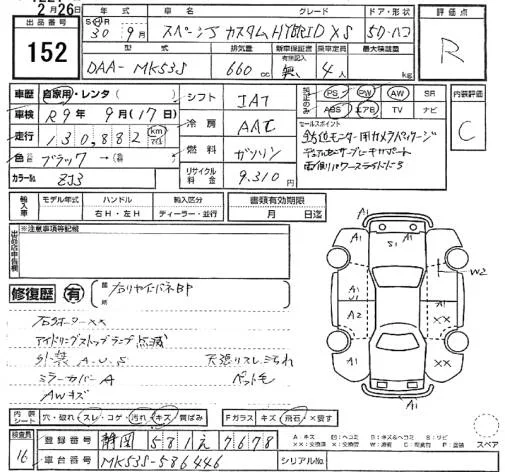 2月26日
出品番号
152
年式 車名 グレード ドア・形状 評価点
30年 9月 スペーシア カスタム HYBRID XS 5D・ハコ
R
型式 排気量 新車保証書 乗車定員 最大積載量
有無記入
DAA-MK53S 660cc 無 4人 kg
車歴 自家用・レンタ( ) シフト IAT
PS PW AW SR 内装評価
ABS エアB TV ナビ
車検 R9年 9月(17日) 冷房 AAC
セールスポイント
C
走行 130,882 km マイル
全方位モニター用カメラパッケージ
デュアルセンサーブレーキサポート
両側パワースライドドア
色 ブラック →( ) 燃料 ガソリン
カラーNo. ZJ3 リサイクル料金 9,310円
輸入車 モデル年式 ハンドル 輸入区分 書類有効期限
右H・左H ディーラー・並行 月 日迄
出品店申告欄 ※注意事項等記載
修復歴 有 箇所
アイドリングストップランプ点滅
外装 A.U.S
天張りスレ汚れ
ミラーカバーA
ペット毛
AWキズ
A1 A1 S1 A1 W2 A1 A2 XX
内装シート 穴・破れ スレ・コゲ 汚れ・キズ 質ばみ Fガラス キズ 飛石 ×要す
検査員 16
登録番号 静岡 581 え 7678
車台番号 MK53S-586446 シリアルNo.
スペア